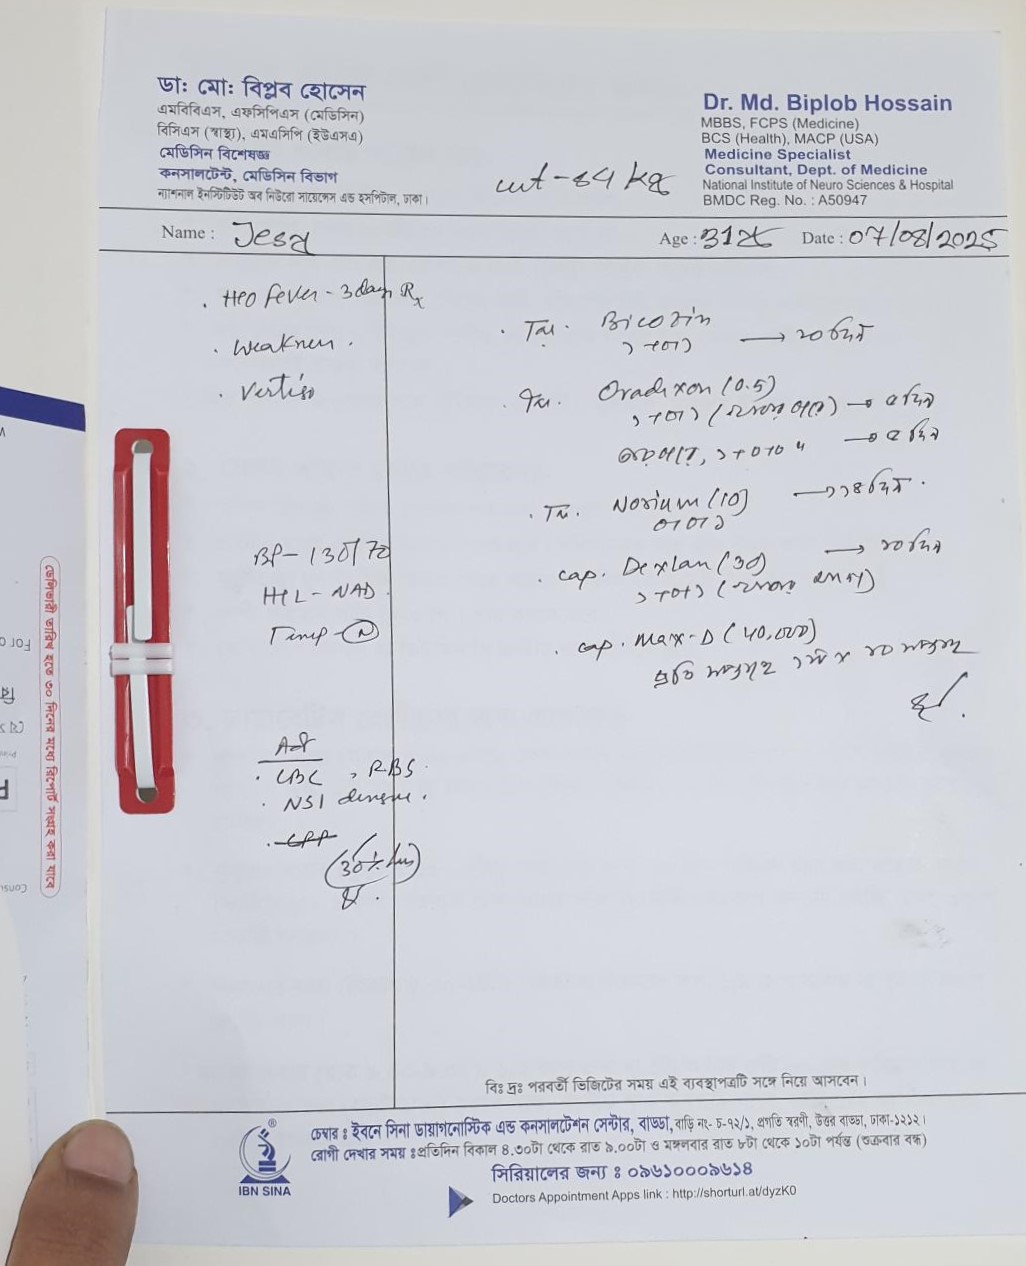 ডা: মো: বিপ্লব হোসেন
এমবিবিএস, এফসিপিএস (মেডিসিন)
বিসিএস (স্বাস্থ্য), এমএসিপি (ইউএসএ)
মেডিসিন বিশেষজ্ঞ
কনসালটেন্ট, মেডিসিন বিভাগ
ন্যাশনাল ইনস্টিটিউট অব নিউরো সায়েন্সেস এন্ড হসপিটাল, ঢাকা।
wt-64 kg
Dr. Md. Biplob Hossain
MBBS, FCPS (Medicine)
BCS (Health), MACP (USA)
Medicine Specialist
Consultant, Dept. of Medicine
National Institute of Neuro Sciences & Hospital
BMDC Reg. No. : A50947
Name :
Age : 31 Date : 07/08/2025
. H/O fever - 3 days
. Weakness.
. Vertigo
BP- 130/70
H/L - NAD
Temp - (N)
. CBC , RBS.
. NS1 dengue.
(30% less)
Rx
. Tab. Bicozin
১+০+১ → ২০ দিন
. Tab. Oradexon (0.5)
১+০+১ (খাবার পরে) → ৫ দিন
তারপরে, ১+০+০ " → ৫ দিন
. Tab. Norium (10) → ১৪ দিন.
০+০+১
. Cap. Dexlan (30) → ২০ দিন
১+০+১ (খাবার আগে)
. Cap. Max-D (40,000)
প্রতি সপ্তাহে ১টি x ১০ সপ্তাহ
বিঃ দ্রঃ পরবর্তী ভিজিটের সময় এই ব্যবস্থাপত্রটি সঙ্গে নিয়ে আসবেন।
IBN SINA
চেম্বার : ইবনে সিনা ডায়াগনোস্টিক এন্ড কনসালটেশন সেন্টার, বাড্ডা, বাড়ি নং- চ-৭২/১, প্রগতি স্বরণী, উত্তর বাড্ডা, ঢাকা-১২১২।
রোগী দেখার সময় : প্রতিদিন বিকাল ৪.৩০টা থেকে রাত ৯.০০টা ও মঙ্গলবার রাত ৮টা থেকে ১০টা পর্যন্ত (শুক্রবার বন্ধ)
সিরিয়ালের জন্য : ০৯৬১০০০৯৬১৪
Doctors Appointment Apps link : http://shorturl.at/dyzK0
ডেলিভারী তারিখ হতে ৩০ দিনের মধ্যে রিপোর্ট সংগ্রহ করা যাবে